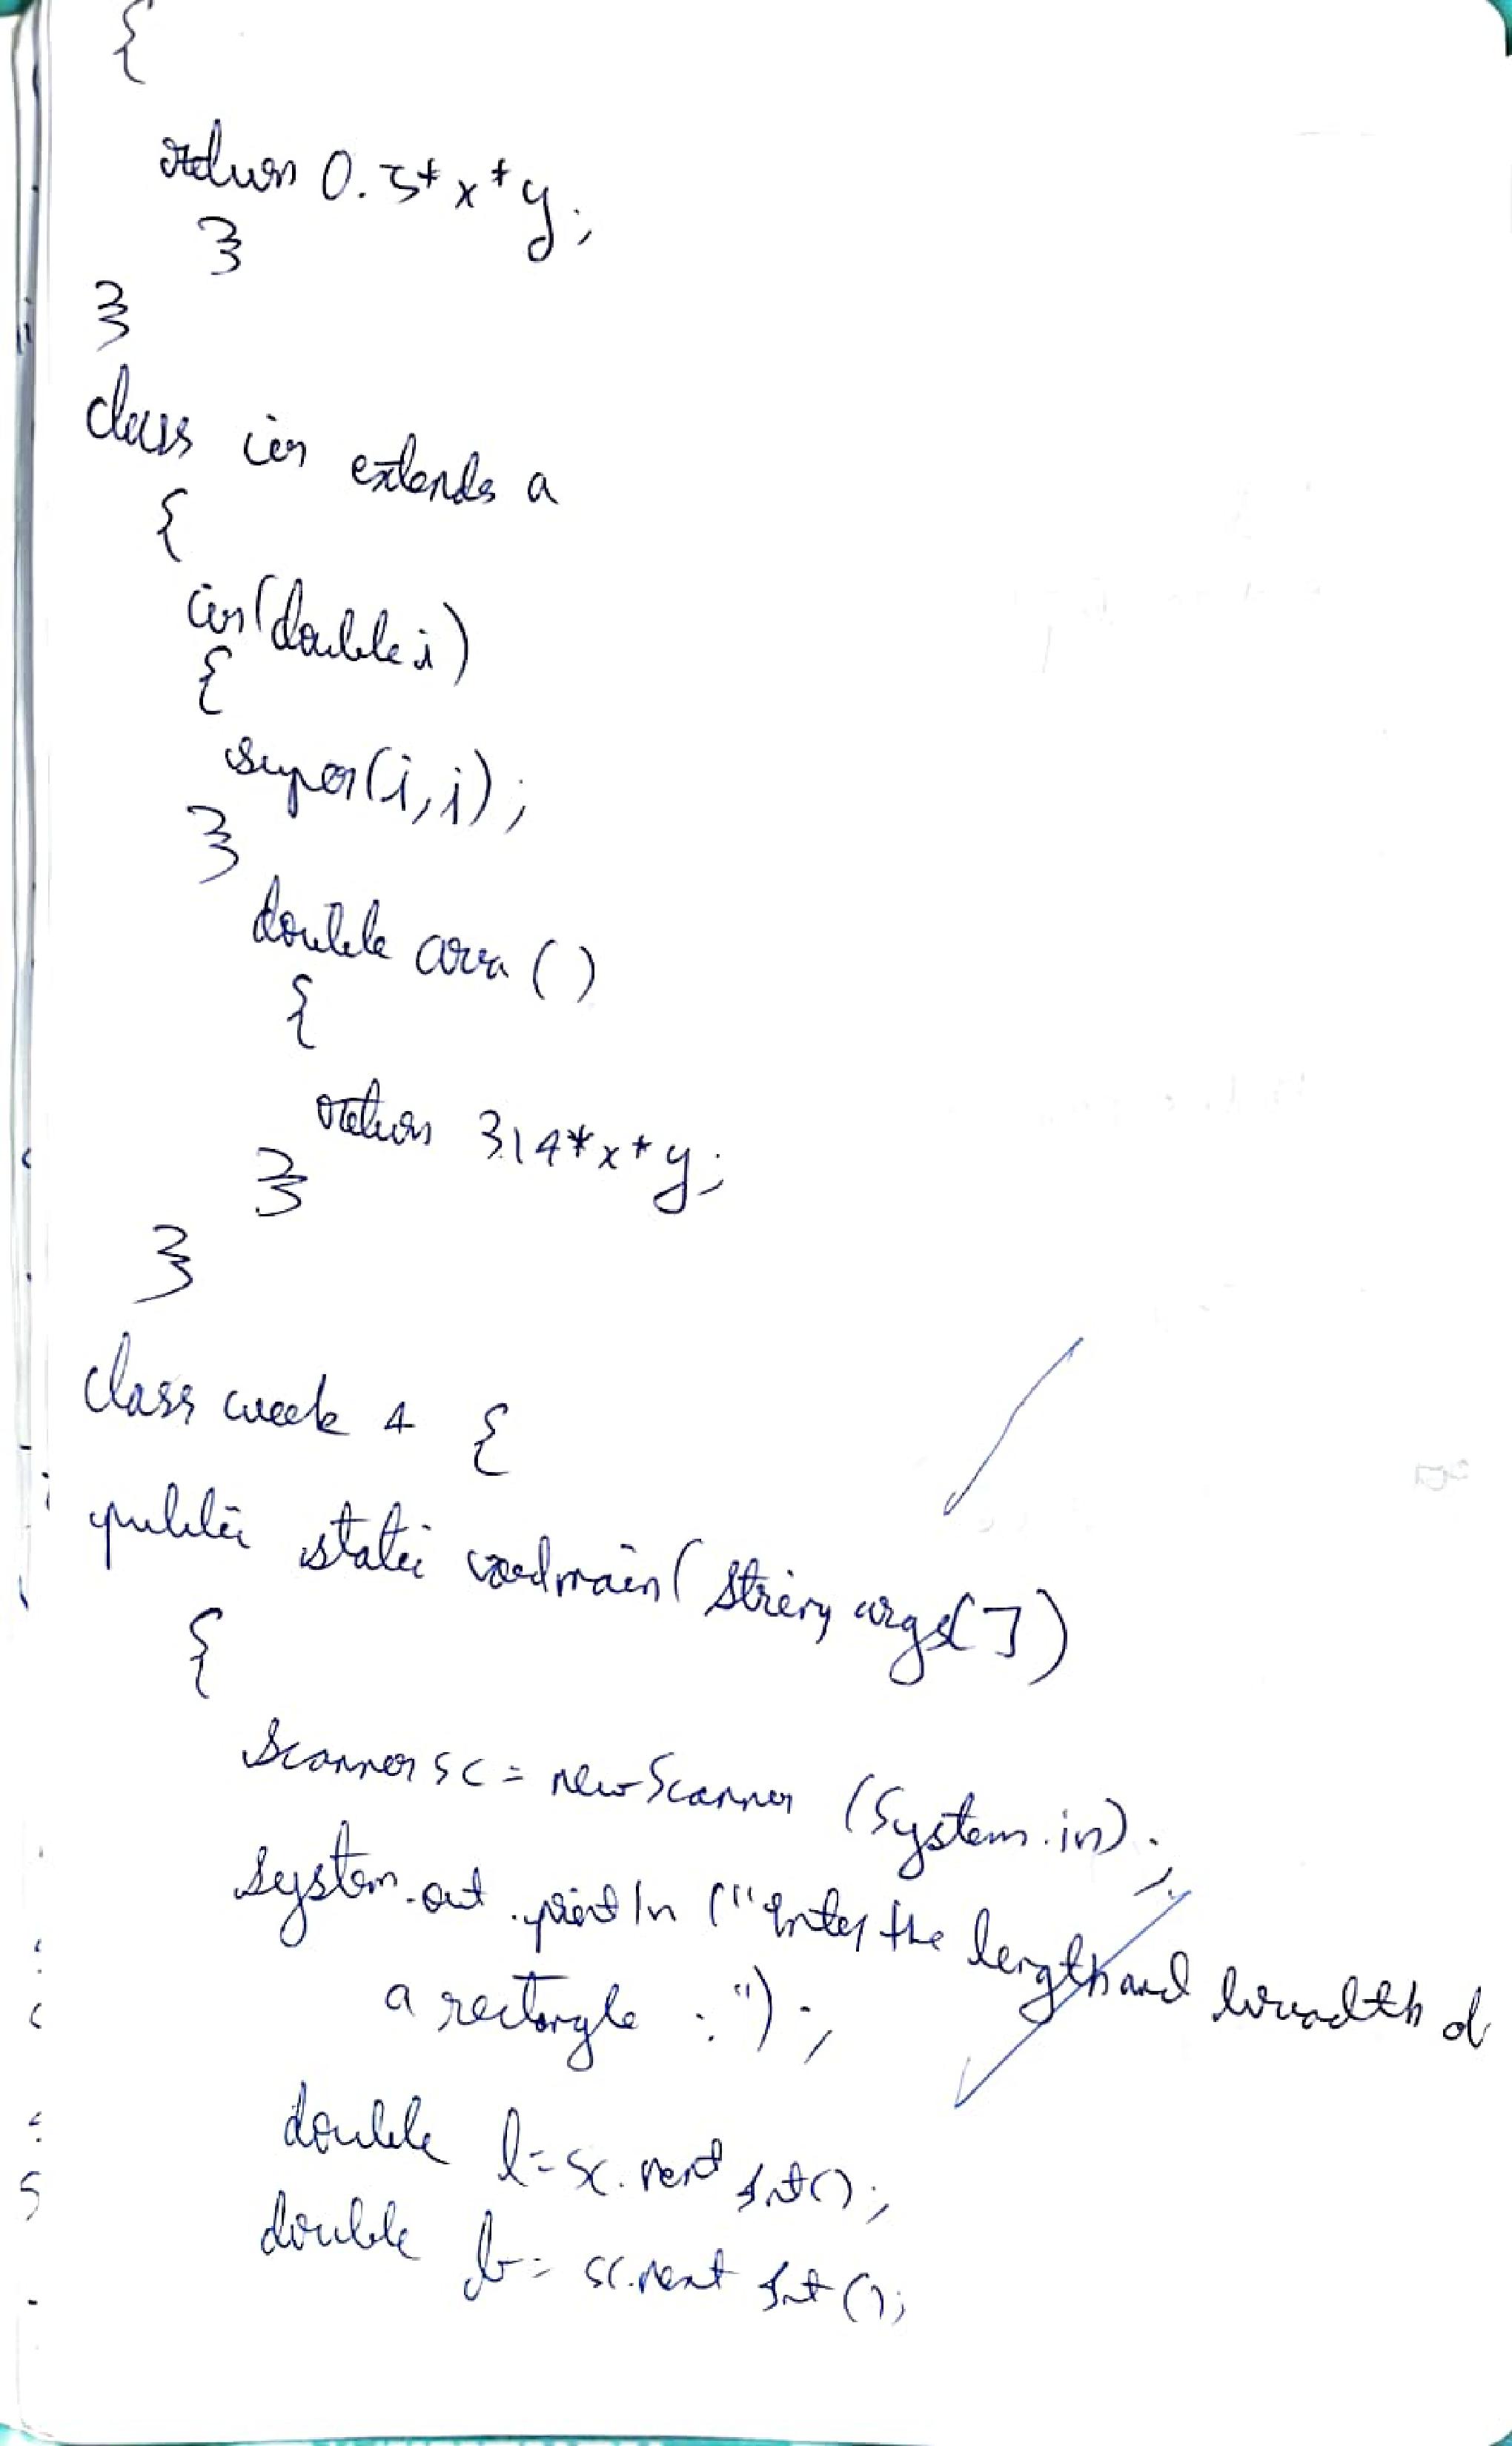 {
return 0.5*x*y;
}
}
class cir extends a
{
cir(double i)
{
super(i,i);
}
double area ()
{
return 3.14*x*y;
}
}
class week 4 {
public static void main( String args[])
{
Scanner sc = new Scanner (System.in);
System.out.println ("Enter the length and breadth of
a rectangle :");
double l=sc.next Int();
double b= sc.next Int();